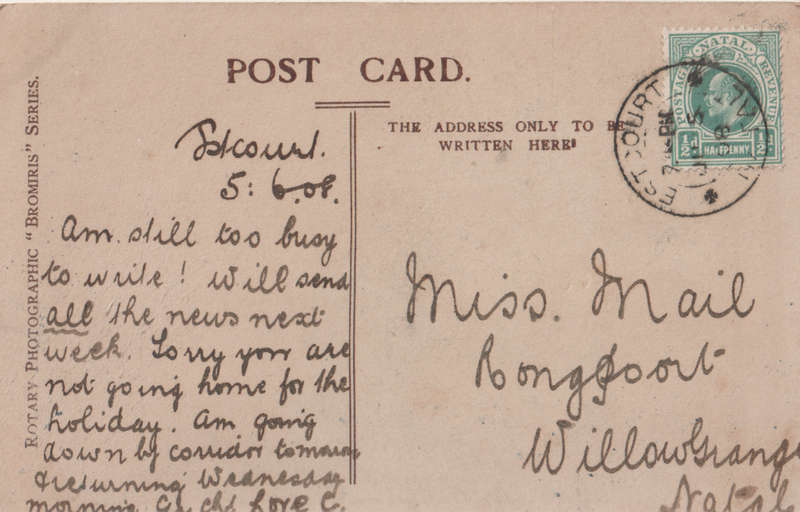 POST CARD.
THE ADDRESS ONLY TO BE
WRITTEN HERE
NATAL
POSTAGE
REVENUE
½d HALFPENNY ½d
ESTCOURT
NATAL
ROTARY PHOTOGRAPHIC "BROMIRIS" SERIES.
Estcourt.
5: 6.08.
Am still too busy
to write! Will send
all the news next
week. Sorry you are
not going home for the
holiday. Am going
down by corridor tomorrow
& returning Wednesday
morning. Love C.
Miss. Mail
Rongpoort
WillowGrange
Natal